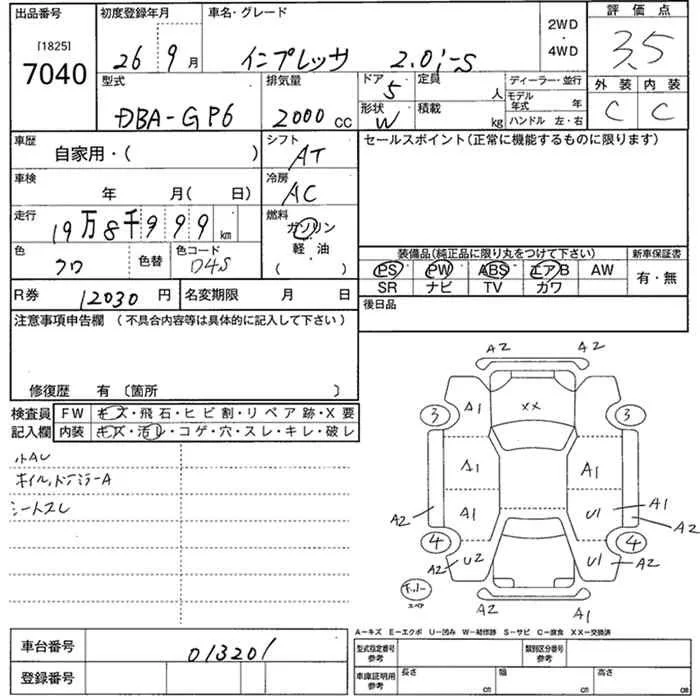 出品番号 初度登録年月 車名・グレード 2WD ・ 4WD 評価点
[1825]
7040 26 9月 インプレッサ 2.0i-S 3.5
型式 排気量 ドア 5 定員 人 ディーラー・並行 外装 内装
モデル年式 年
DBA-GP6 2000 CC 形状 W 積載 kg ハンドル 左・右 C C
車歴 自家用・( ) シフト AT セールスポイント(正常に機能するものに限ります)
車検 年 月( 日) 冷房 AC
走行 19万8千999km 燃料 ガソリン
軽・油
( )
色 クロ 色替 色コード D4S
装備品(純正品に限り丸をつけて下さい) 新車保証書
PS PW ABS エアB AW 有・無
SR ナビ TV カワ
R券 12030円 名変期限 月 日 後日品
注意事項申告欄 (不具合内容等は具体的に記入して下さい)
修復歴 有 〔箇所 〕
検査員 FW キズ・飛石・ヒビ割・リペア跡・X要
記入欄 内装 キズ・汚レ・コゲ・穴・スレ・キレ・破レ
小AU
シートスレ
A2 A2
3 A1 XX 3
A1 A1
A2 A1 U1 A1 A2
4 4
A2 U2 U1 A2
スペア A2 A1
A-キズ E-エクボ U-凹み W-補修跡 S-サビ C-腐食 XX-交換済
車台番号 013201 型式指定番号 参考 類別区分番号 参考
登録番号 車庫証明用 参考 長さ cm 幅 cm 高さ cm